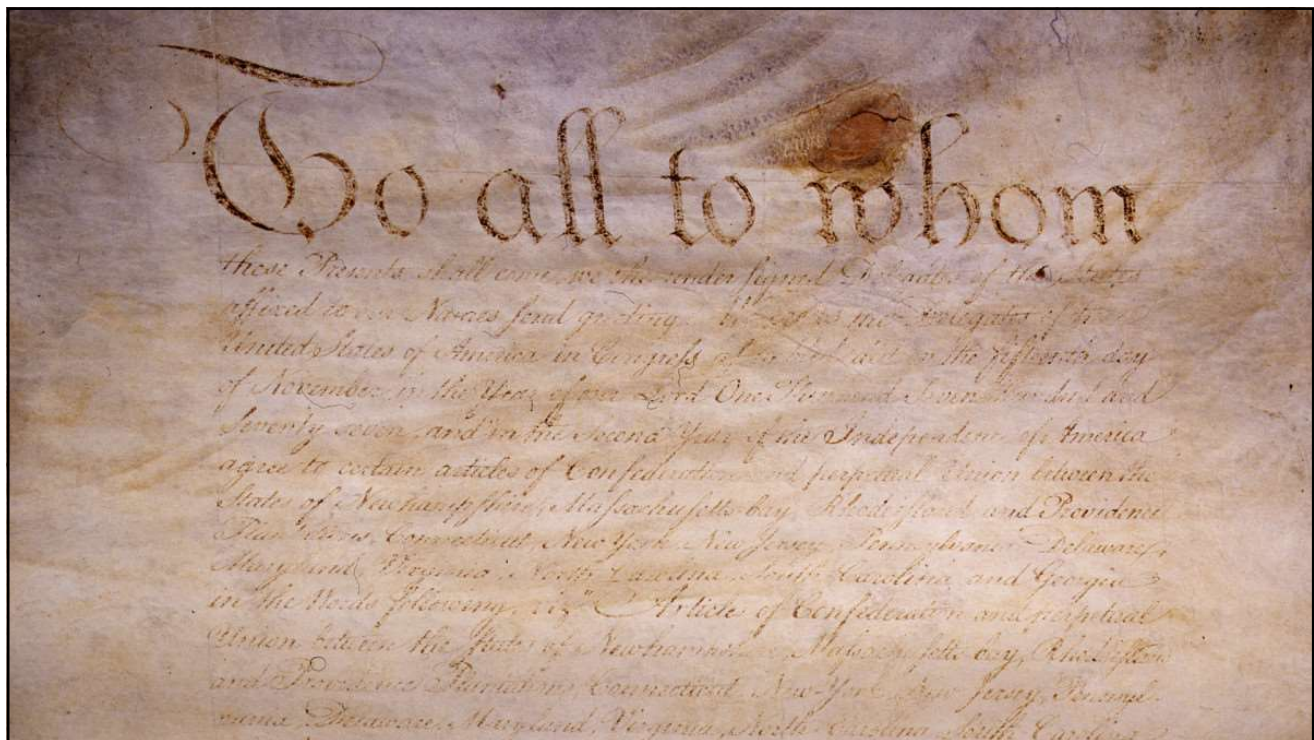 To all to whom
these Presents shall come, we the under signed Delegates of the States
affixed to our Names send greeting. Whereas the Delegates of the
United States of America in Congress assembled did on the fifteenth day
of November in the Year of our Lord One Thousand Seven Hundred and
Seventy seven, and in the Second Year of the Independence of America
agree to certain articles of Confederation and perpetual Union between the
States of Newhampshire, Massachusetts-bay, Rhodeisland and Providence
Plantations, Connecticut, New York, New Jersey, Pennsylvania, Delaware,
Maryland, Virginia, North-Carolina, South-Carolina and Georgia
in the Words following, viz. "Articles of Confederation and perpetual
Union between the States of Newhampshire, Massachusetts-bay, Rhodeisland
and Providence Plantations, Connecticut, New-York, New-Jersey, Pennsyl-
vania, Delaware, Maryland, Virginia, North-Carolina, South-Carolina